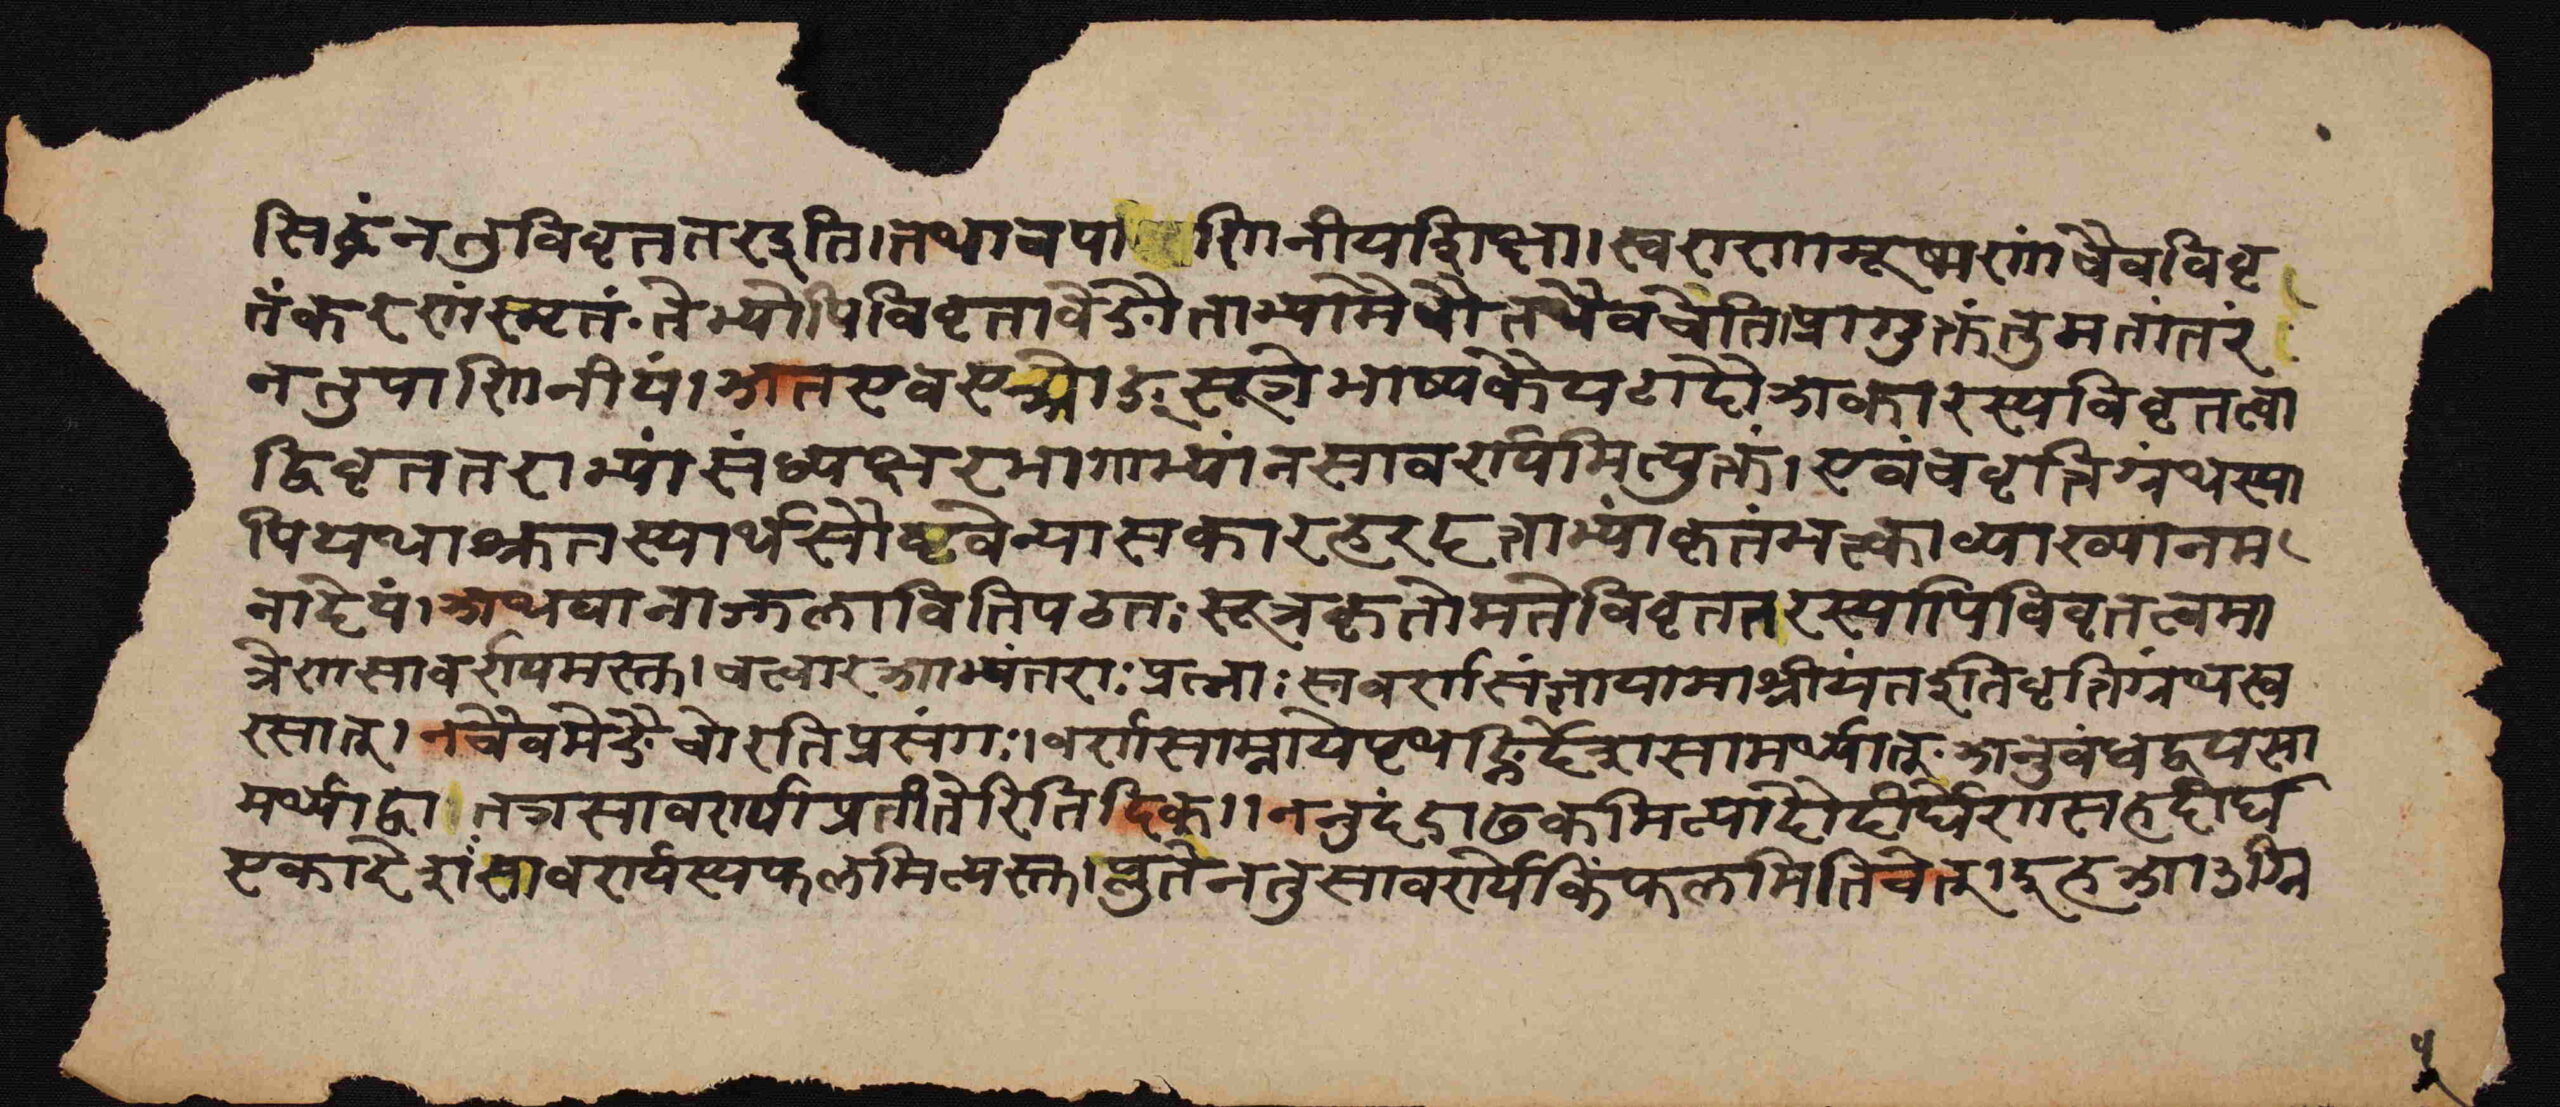 सिद्धंनतुविवृततरइति।तथाचपाणिनीयशिक्षा।स्वराणामूष्मणांचैवविवृ
तंकरणंस्मृतं॰तेभ्योपिविवृतावेङौताभ्यामैचौतथैवचेति।प्रागुक्तंतुमतांतरं
नतुपाणिनीयं।अतएवएओङ्सूत्रेभाष्यकैयटादौअकारस्यविवृतत्वा
द्विवृततराभ्यांसंध्यक्षरभागाभ्यांनसावर्ण्यमित्युक्तं।एवंचवृत्तिग्रंथस्या
पियथाश्रुतस्यार्थसौष्ठवेन्यासकारहरदत्ताभ्यांकृतंभक्त्काव्याख्यानम
नादेयं।अथवानाज्झलावितिपठतःसूत्रकृतोमतेविवृततरस्यापिविवृतत्वमा
त्रेणसावर्ण्यमस्तु।चत्वारआभ्यंतराःप्रयत्नाःसवर्णसंज्ञायामाश्रीयंतइतिवृत्तिग्रंथस्व
रसात्।नचैवमेङैचोरतिप्रसंगः।वर्णसाम्नायेपृथङ्निर्देशसामर्थ्यात्॰अनुबंधद्वयसा
मर्थ्याद्वा।तत्रसावर्ण्याप्रतीतेरितिदिक्।।ननुदंडाढकमित्यादौदीर्घेणसहदीर्घ
एकादेशःसावर्ण्यस्यफलमित्यस्तु।प्लुतेनतुसावर्ण्येकिंफलमितिचेत्।इहआ३ग्नि
५